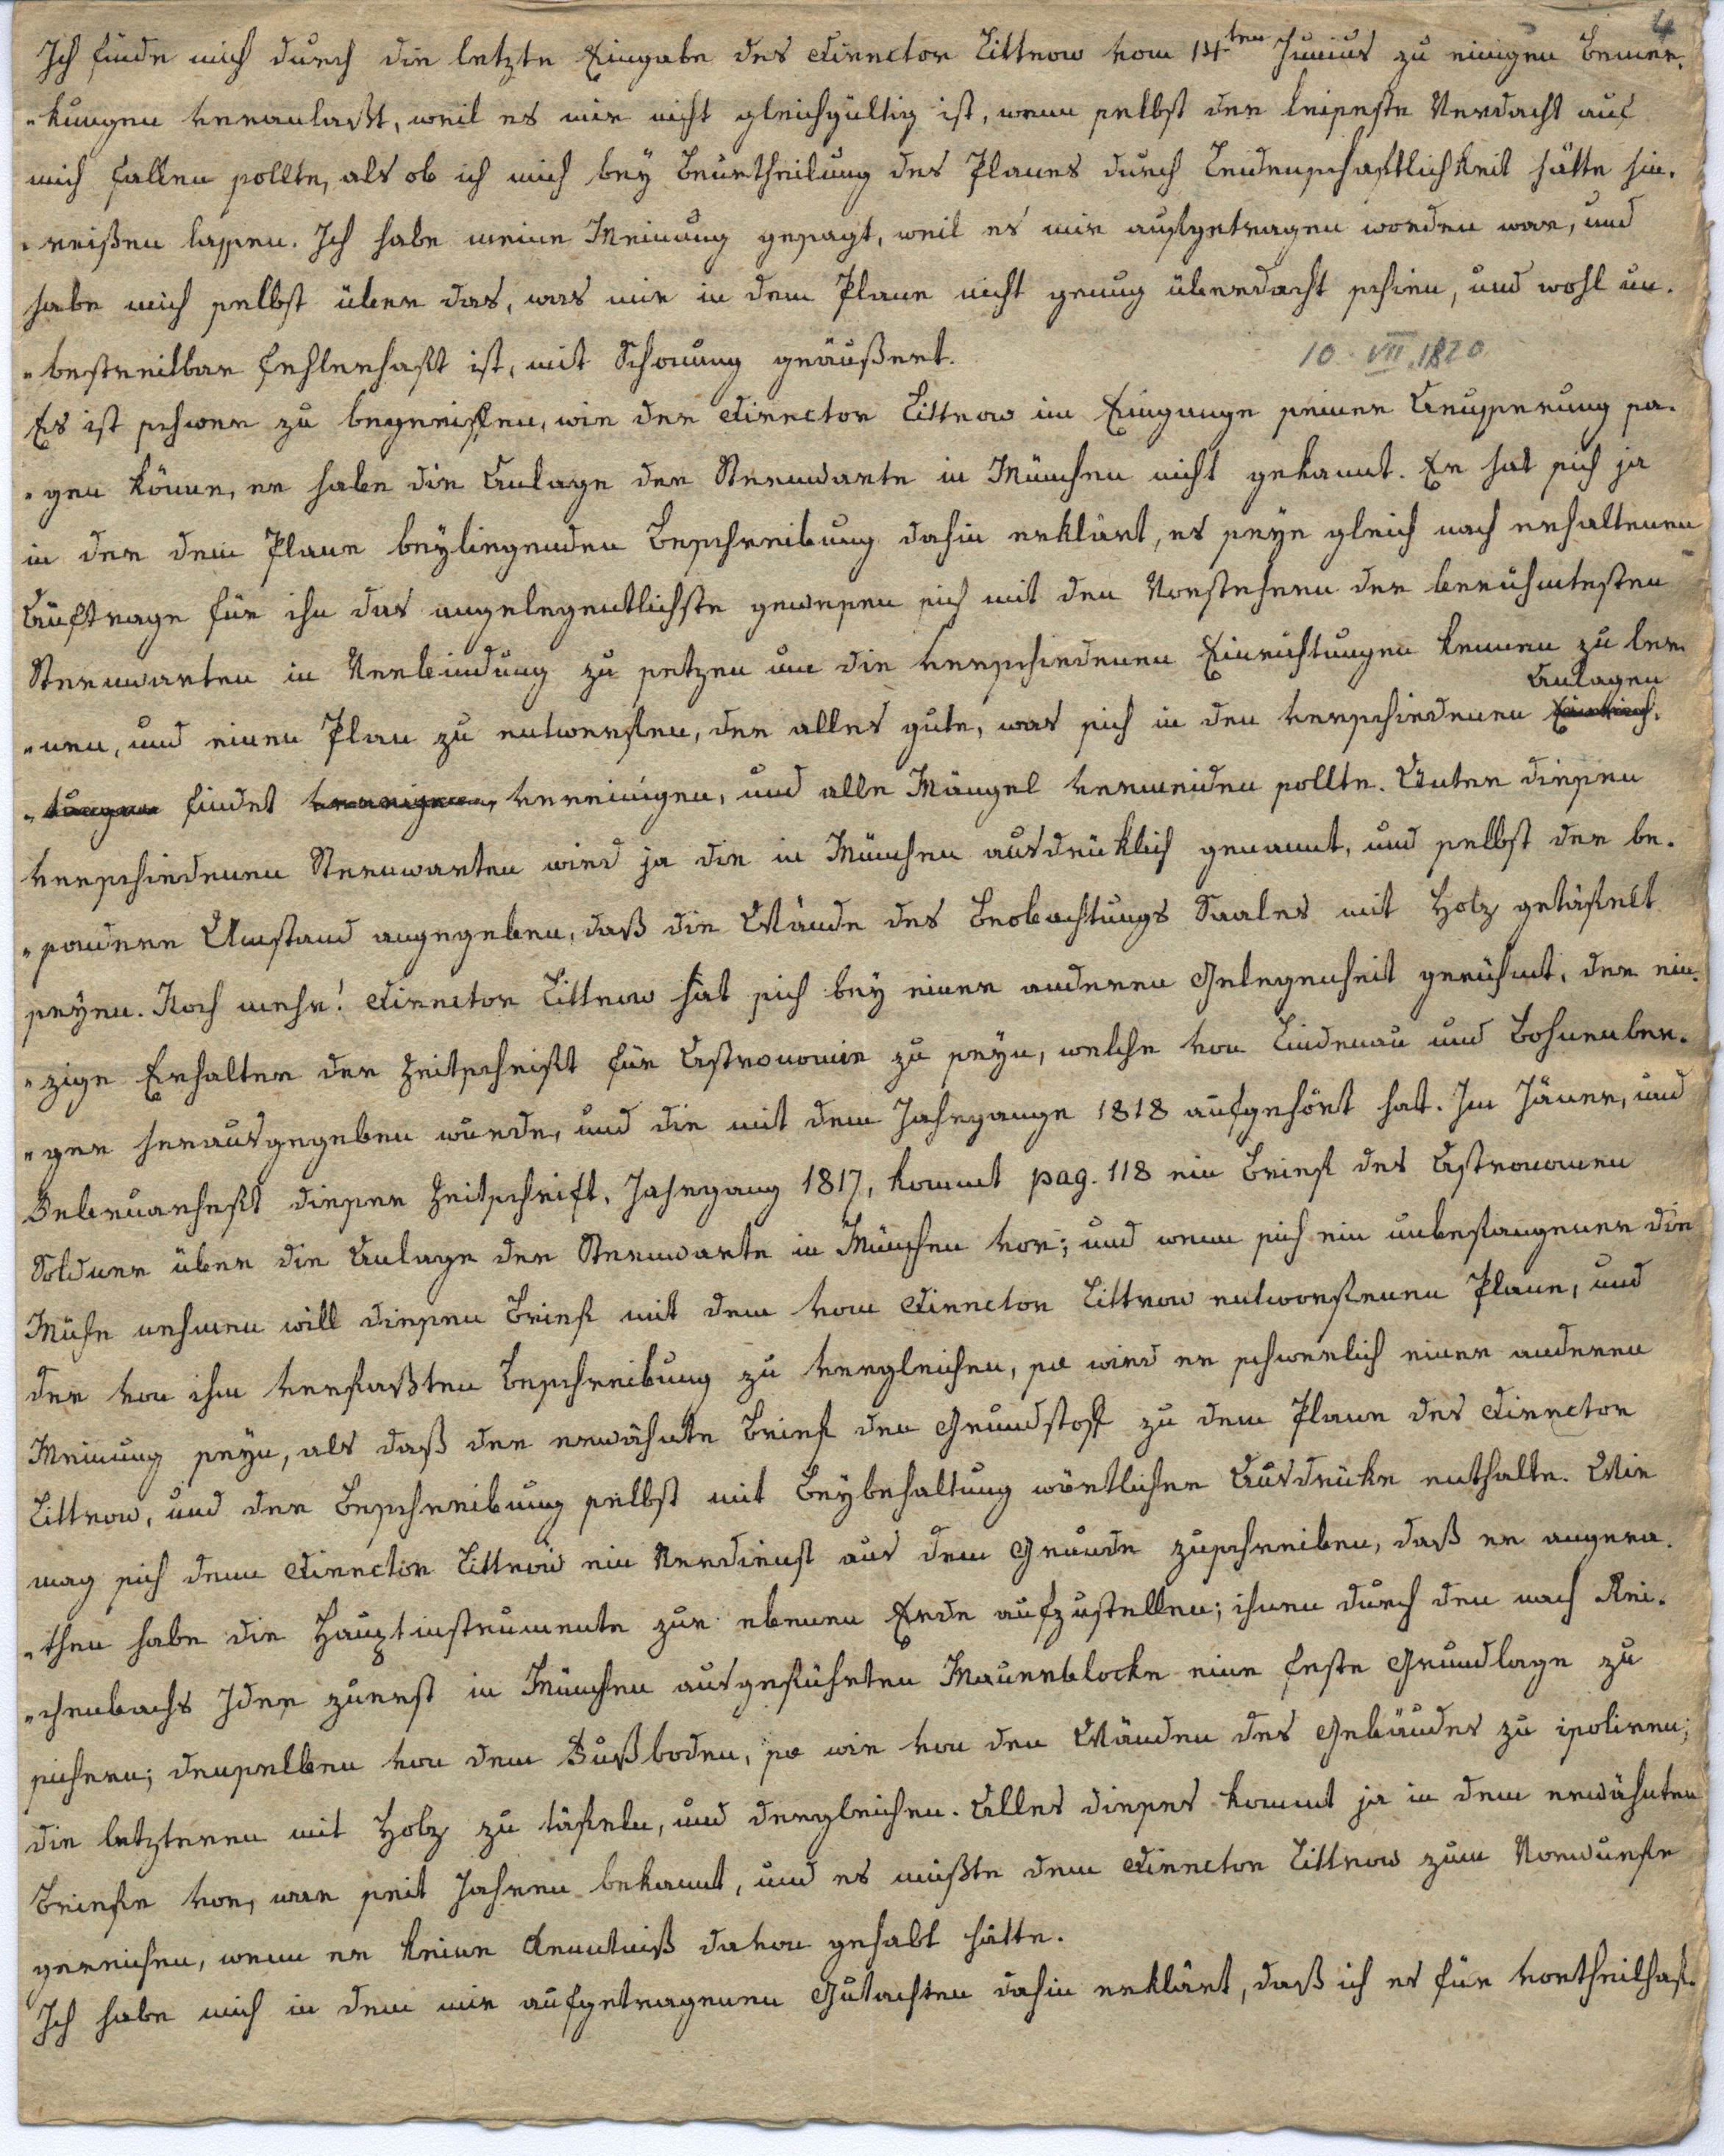 4
Ich finde mich durch die letzte Eingabe des Director Littrow vom 14ten Junius zu einigen Bemer-
"kungen veranlaßt, weil es mir nicht gleichgültig ist, wenn selbst der leiseste Verdacht auf
mich fallen sollte, als ob ich mich bey Beurtheilung des Planes durch Leidenschaftlichkeit hätte hin-
"reißen lassen. Ich habe meine Meinung gesagt, weil es mir aufgetragen worden war, und
habe mich selbst über das, was mir in dem Plane nicht genug überdacht schien, und wohl un-
"bestreitbar fehlerhaft ist, mit Schonung geäußert.
10. VII. 1820
Es ist schwer zu begreiffen, wie der Director Littrow im Eingange seiner Aeusserung sa-
"gen könne, er habe die Anlage der Sternwarte in München nicht gekannt. Er hat sich ja
in der dem Plane beyliegenden Beschreibung dahin erklärt, es seye gleich nach erhaltenen
Auftrage für ihn das angelegentlichste gewesen sich mit den Vorstehern der berühmtesten
Sternwarten in Verbindung zu setzen um die verschiedenen Einrichtungen kennen zu ler-
Anlagen
"nen, und einen Plan zu entwerfen, der alles gute, was sich in den verschiedenen Einrich-
"tungen findet vereinigen, vereinigen, und alle Mängel vermeiden sollte. Unter diesen
verschiedenen Sternwarten wird ja die in München ausdrüklich genannt, und selbst der be-
"sondere Umstand angegeben, daß die Wände des Beobachtungs Saales mit Holz getäfelt
seyen. Noch mehr! Director Littrow hat sich bey einer anderen Gelegenheit gerühmt, der ein-
"zige Erhalter der Zeitschrift für Astronomie zu seyn, welche von Lindenau und Bohnenber-
"ger herausgegeben wurde, und die mit dem Jahrgange 1818 aufgehört hat. Im Jäner, und
Februarheft dieser Zeitschrift, Jahrgang 1817, kommt pag. 118 ein Brief des Astronomen
Soldner über die Anlage der Sternwarte in München vor; und wenn sich ein unbefangener die
Mühe nehmen will diesen Brief mit dem vom Director Littrow entworfenen Plane, und
der von ihm verfaßten Beschreibung zu vergleichen, so wird er schwerlich einer anderen
Meinung seyn, als daß der erwähnte Brief den Grundstoff zu dem Plane des Director
Littrow, und der Beschreibung selbst mit Beybehaltung wörtlicher Ausdrücke enthalte. Wie
mag sich denn Director Littrow ein Verdienst aus dem Grunde zuschreiben, daß er angera-
"then habe die Hauptinstrumente zur ebenen Erde aufzustellen; ihnen durch den nach Rei-
"chenbachs Idee zuerst in München ausgeführten Mauerblocke eine feste Grundlage zu
sichern; denselben von dem Fußboden, so wie von den Wänden des Gebäudes zu isoliren;
die letzteren mit Holz zu täfeln, und dergleichen. Alles dieses kommt ja in dem erwähnten
Briefe vor, war seit Jahren bekannt, und es müßte dem Director Littrow zum Vorwurfe
gereichen, wenn er keine Kenntniß davon gehabt hätte.
Ich habe mich in dem mir aufgetragenen Gutachten dahin erklärt, daß ich es für vortheilhaf-